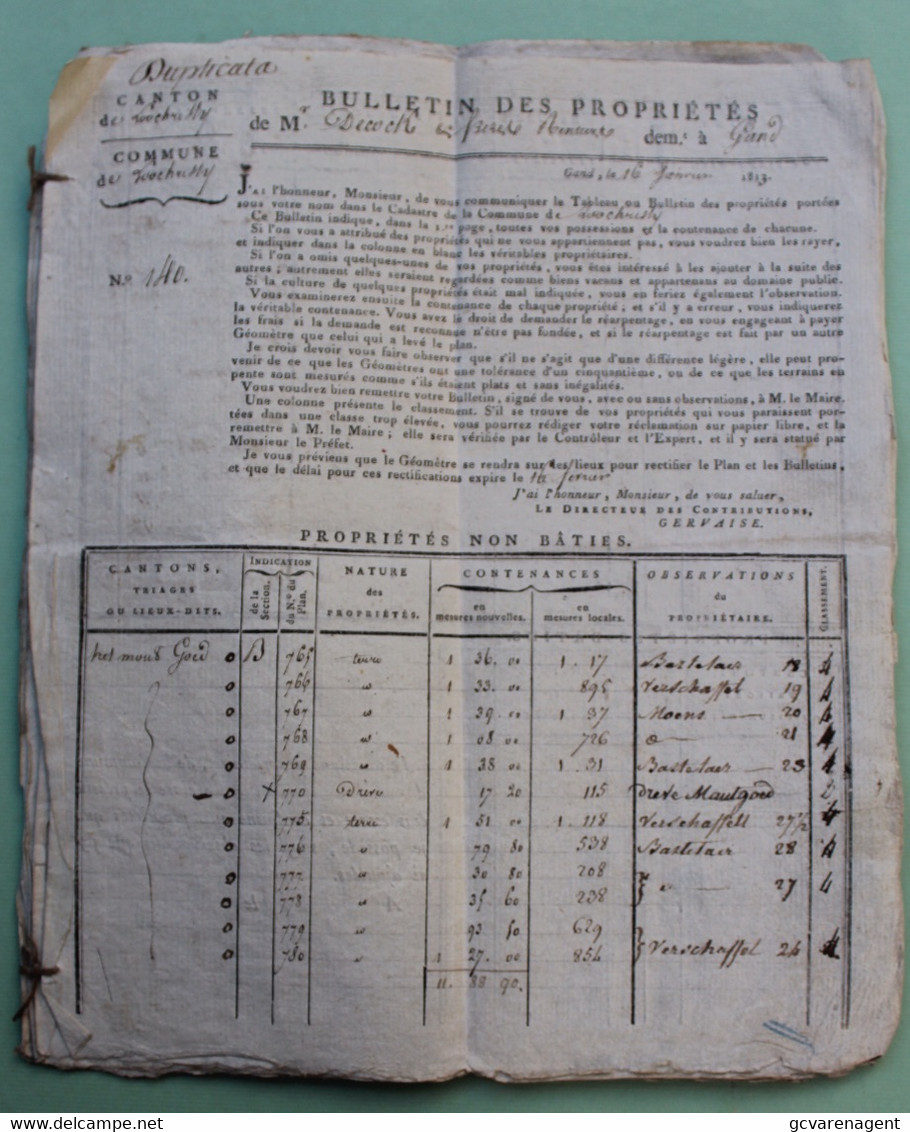 Duplicata
CANTON
de Loochristy
COMMUNE
de Loochristy
N.º 140.
BULLETIN DES PROPRIÉTÉS
de M.r Decock dem.t à Gand
Gand, le 16 fevrier 1813.
J'ai l'honneur, Monsieur, de vous communiquer le Tableau ou Bulletin des propriétés portées
sous votre nom dans le Cadastre de la Commune de Loochristy
Ce Bulletin indique, dans la 1.re page, toutes vos possessions et la contenance de chacune.
Si l'on vous a attribué des propriétés qui ne vous appartiennent pas, vous voudrez bien les rayer,
et indiquer dans la colonne en blanc les véritables propriétaires.
Si l'on a omis quelques-unes de vos propriétés, vous êtes intéressé à les ajouter à la suite des
autres; autrement elles seraient regardées comme biens vacans et appartenans au domaine public.
Si la culture de quelques propriétés était mal indiquée, vous en feriez également l'observation.
Vous examinerez ensuite la contenance de chaque propriété; et s'il y a erreur, vous indiquerez
la véritable contenance. Vous avez le droit de demander le réarpentage, en vous engageant à payer
les frais si la demande est reconnue n'être pas fondée, et si le réarpentage est fait par un autre
Géomètre que celui qui a levé le plan.
Je crois devoir vous faire observer que s'il ne s'agit que d'une différence légère, elle peut pro-
venir de ce que les Géomètres ont une tolérance d'un cinquantième, ou de ce que les terrains en
pente sont mesurés comme s'ils étaient plats et sans inégalités.
Vous voudrez bien remettre votre Bulletin, signé de vous, avec ou sans observations, à M. le Maire.
Une colonne présente le classement. S'il se trouve de vos propriétés qui vous paraissent por-
tées dans une classe trop élevée, vous pourrez rédiger votre réclamation sur papier libre, et la
remettre à M. le Maire; elle sera vérifiée par le Contrôleur et l'Expert, et il y sera statué par
Monsieur le Préfet.
Je vous préviens que le Géomètre se rendra sur les lieux pour rectifier le Plan et les Bulletins,
et que le délai pour ces rectifications expire le 16 fevrier
J'ai l'honneur, Monsieur, de vous saluer,
LE DIRECTEUR DES CONTRIBUTIONS,
GERVAISE.
PROPRIÉTÉS NON BÂTIES.
CANTONS, TRIAGES OU LIEUX-DITS. INDICATION de la Section. du N.º du Plan. NATURE des PROPRIÉTÉS. CONTENANCES en mesures nouvelles. en mesures locales. OBSERVATIONS du PROPRIÉTAIRE. CLASSEMENT.
het mout Goed 0 B 765 terre 1 36. 00 1. 17 Bastelaer 18 4
0 766 " 1 33. 00 895 Verschaffel 19 4
0 767 " 1 39. 00 1. 37 Moens — 20 4
0 768 " 1 08 00 726 21 4
0 769 " 1 38 00 1. 31 Bastelaer — 23 4
— 0 + 770 Drève 17 20 115 Dreve Mautgoed 2
0 775 terre 1 51 00 1. 118 Verschaffelt 27 1/2 4
0 776 " 79 80 538 Bastelaer 28 4
0 777 " 30 80 208
0 778 " 35 60 238 } " — 27 4
0 779 " 93 50 629
0 780 " 1 27. 00 854 } Verschaffel 24 4
11. 88 90.
delcampe.net
gcvarenagent